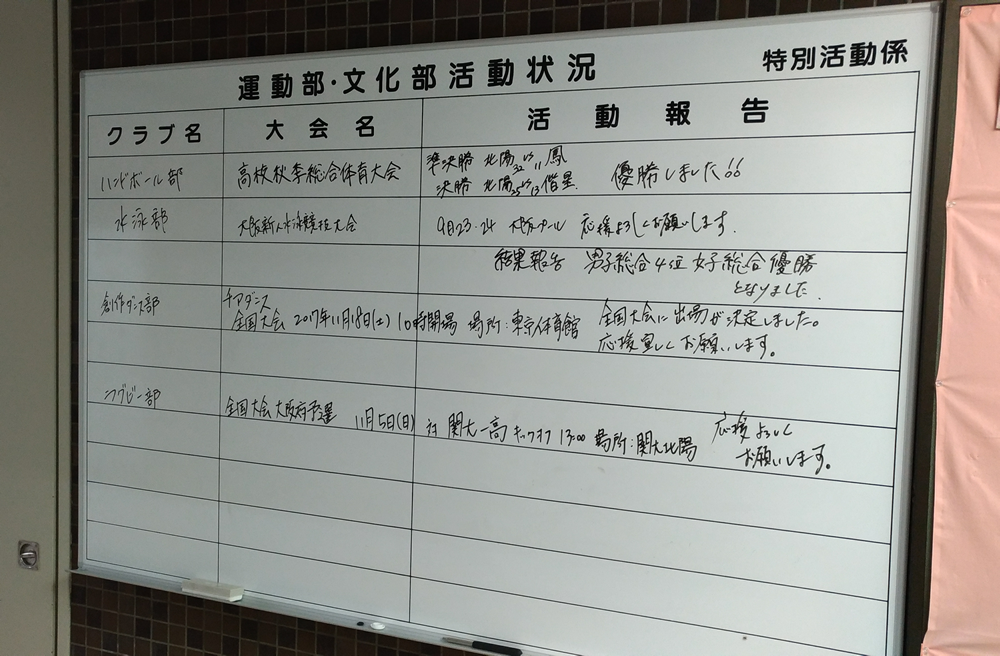 運動部・文化部活動状況
特別活動係
クラブ名 大会名 活動報告
ハンドボール部 高校秋季総合体育大会 準決勝 北陽32vs11鳳 優勝しました!!
決勝 北陽25vs13偕星
水泳部 大阪新人水泳競技大会 9月23.24 大阪プール 応援よろしくお願いします.
結果報告 男子総合4位 女子総合優勝
となりました.
創作ダンス部 チアダンス
全国大会 2017年11月18日(土) 10時開場 場所:東京体育館 全国大会に出場が決定しました。
応援宜しくお願いします。
ラグビー部 全国大会大阪府予選 11月5日(日) 対 関大一高 キックオフ 13:00 場所:関大北陽 応援よろしく
お願いします。